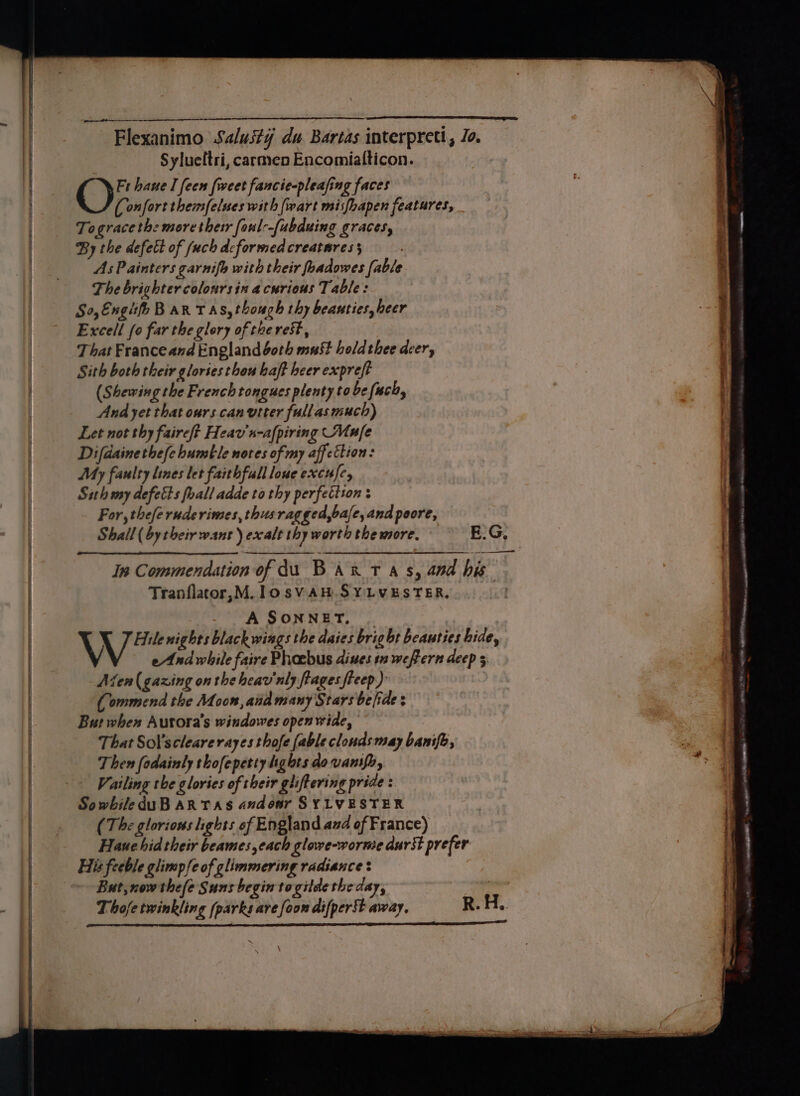 Flexanimo Saluſtij du Bartas interpreti, Io.
Sylueſtri, carmen Encomiaſticon.
OFt haue I ſeen ſweet fancie-pleaſing faces
Conſort themſelues with ſwart miſhapen features,
To grace the more their ſoul-ſubduing graces,
By the defect of ſuch deformed creatures;
As Painters garniſh with their ſhadowes ſable
The brighter colours in a curious Table:
So, Engliſh BARTAS, though thy beauties, heer
Excell ſo far the glory of the reſt,
That France and England both muſt hold thee deer,
Sith both their glories thou haſt heer expreſt
(Shewing the French tongues plenty to be ſuch,
And yet that ours can vtter full as much)
Let not thy faireſt Heav'n-aſpiring Muſe
Diſdaine theſe humble notes of my affection:
My faulty lines let faithfull loue excuſe,
Sith my defects ſhall adde to thy perfection:
For, theſe rude rimes, thus ragged, baſe, and poore,
Shall (by their want) exalt thy worth the more. E.G.
In Commendation of du BARTAS, and his
Tranſlator, M. IOSVAH SYLVESTER.
A SONNET.
WHile nights black wings the daies bright beauties hide,
And while faire Phœbus diues in weſtern deep;
Men (gazing on the heav'nly ſtages ſteep)
Commend the Moon, and many Stars beſide:
But when Aurora's windowes open wide,
That Sol's cleare rayes thoſe ſable clouds may baniſh,
Then ſodainly thoſe petty lights do vaniſh,
Vailing the glories of their gliſtering pride:
So while du BARTAS and our SYLVESTER
(The glorious lights of England and of France)
Haue hid their beames, each glowe-worme durſt prefer
His feeble glimpſe of glimmering radiance:
But, now theſe Suns begin to gilde the day,
Thoſe twinkling ſparks are ſoon diſperſt away. R.H.